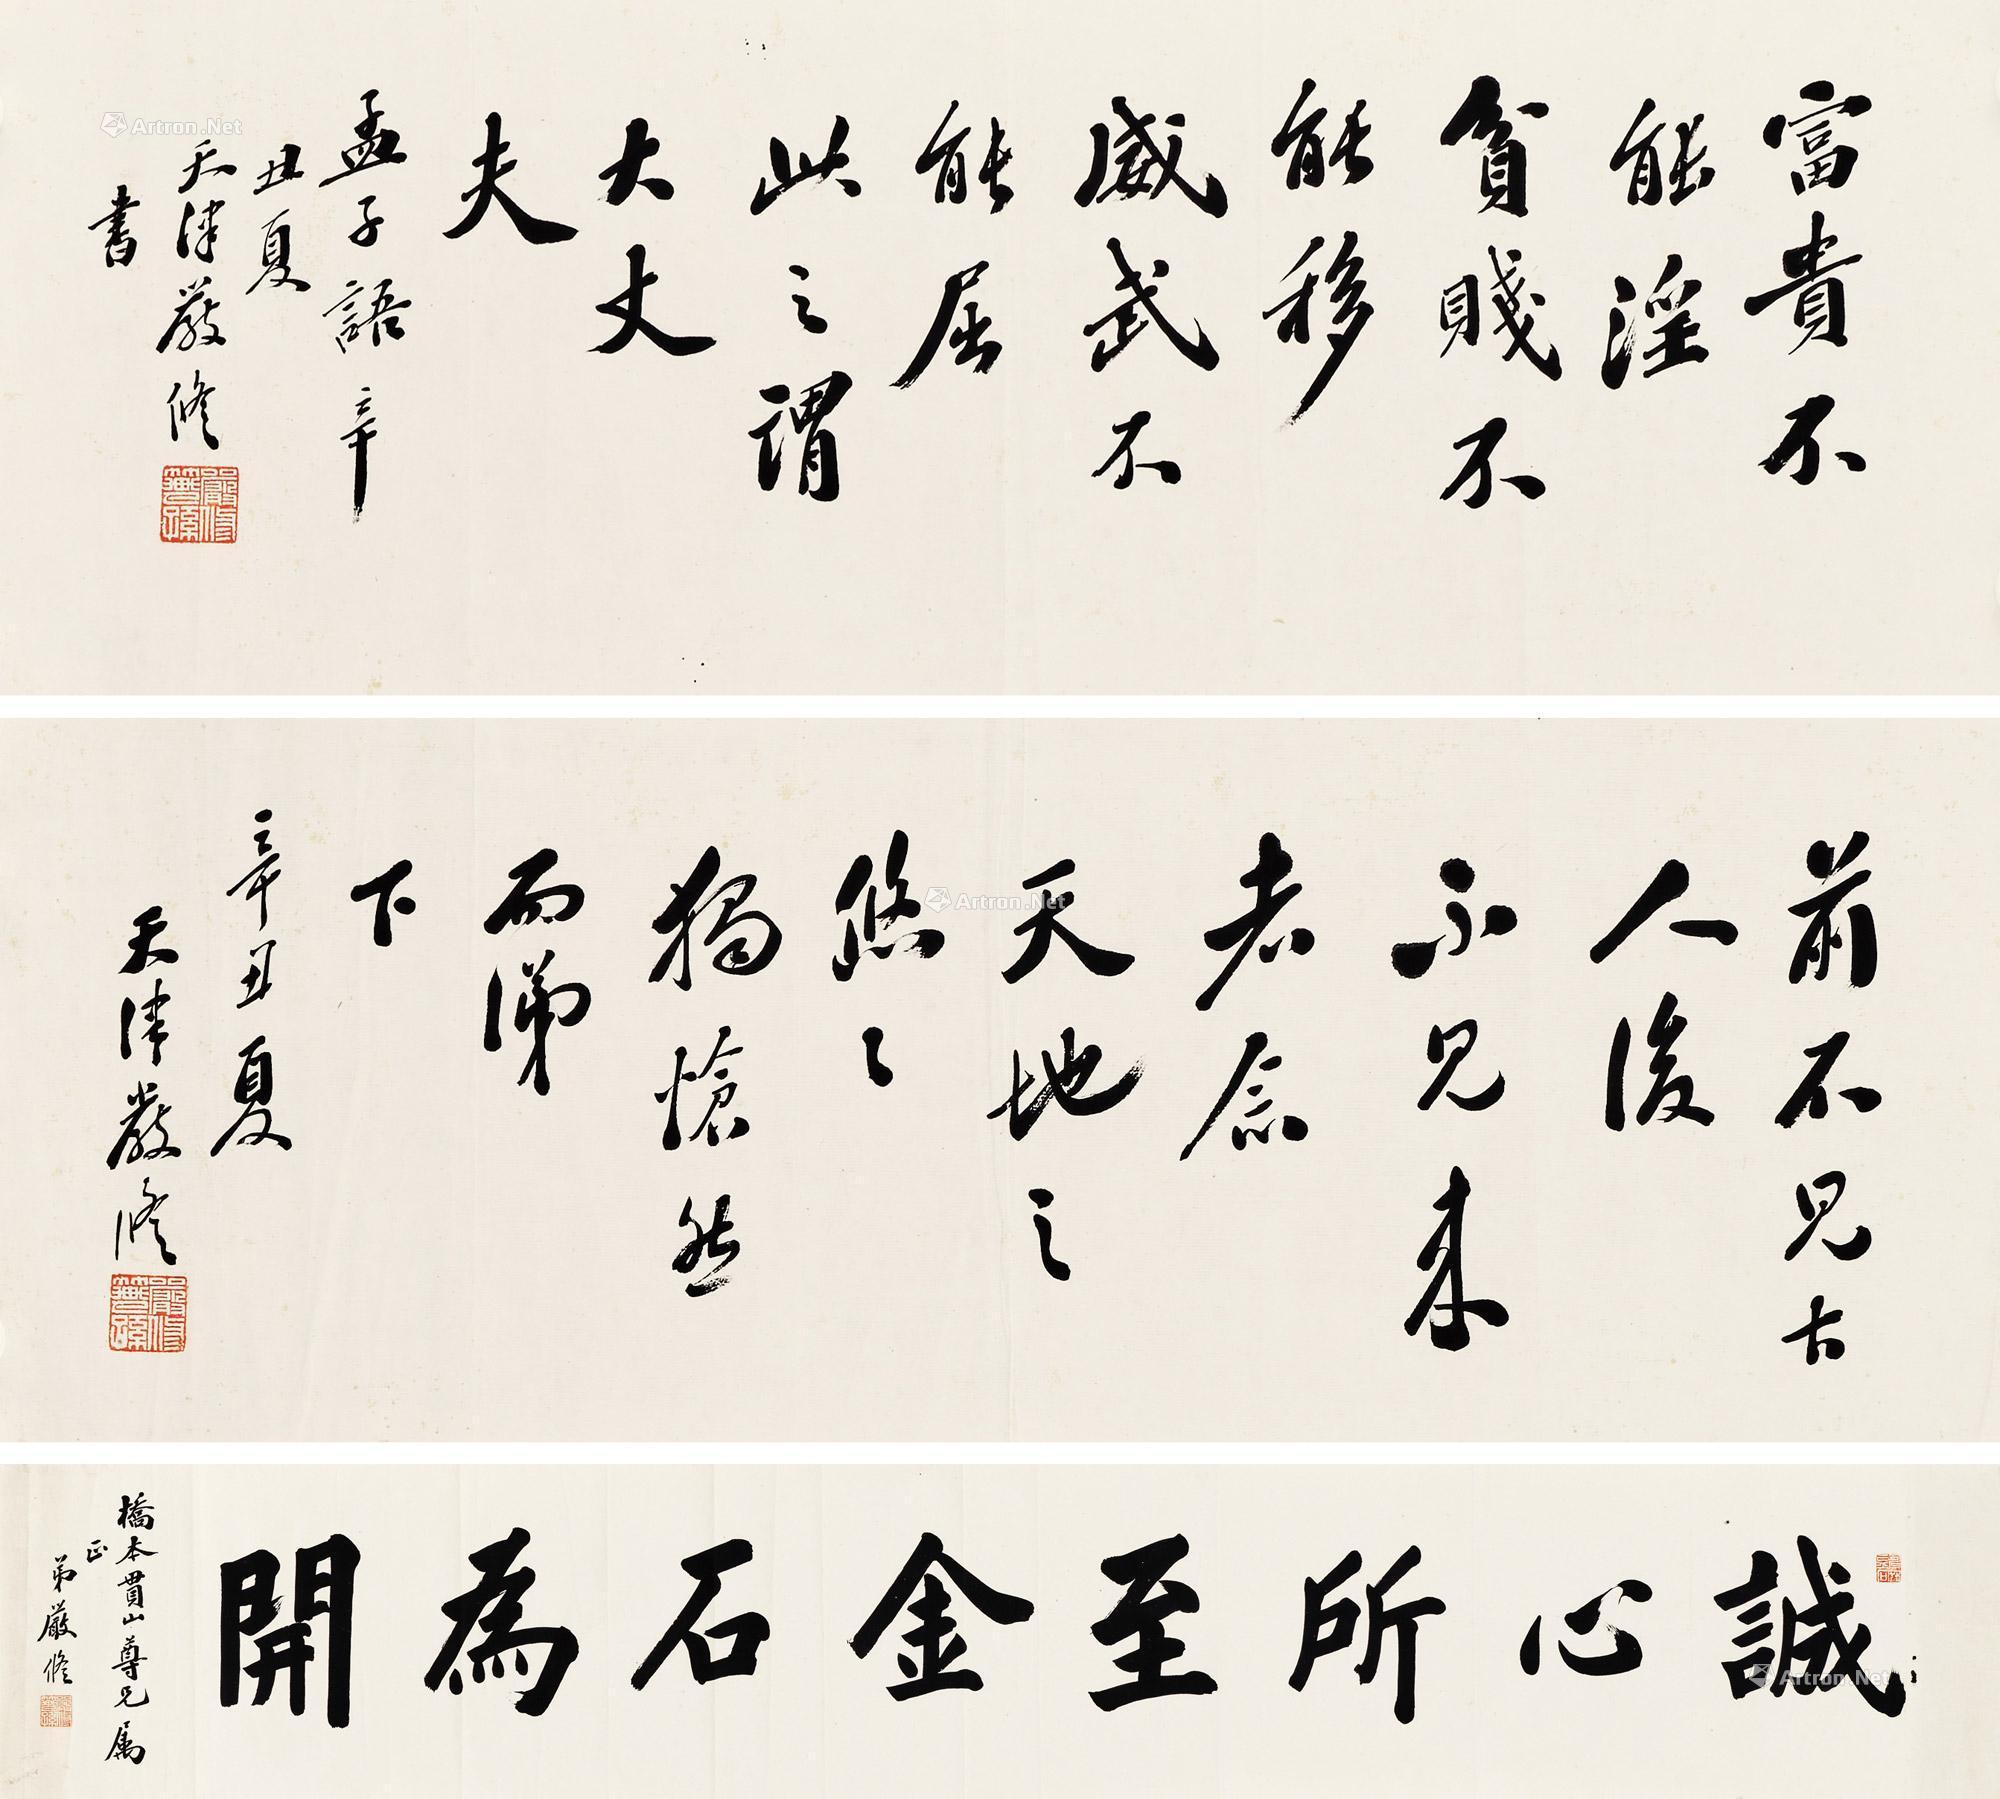 富貴不
能淫
貧賤不
能移
威武不
能屈
此之謂
大丈
夫
孟子語辛
丑夏
天津嚴修
書
嚴修
前不見古
人後
不見来
者念
天地之
悠々
獨愴然
而涕
下
辛丑夏
天津嚴修
嚴修
誠心所至金石為開
橋本貫山尊兄属
正
弟嚴修
Artron.Net
Artron.Net
Artron.Net